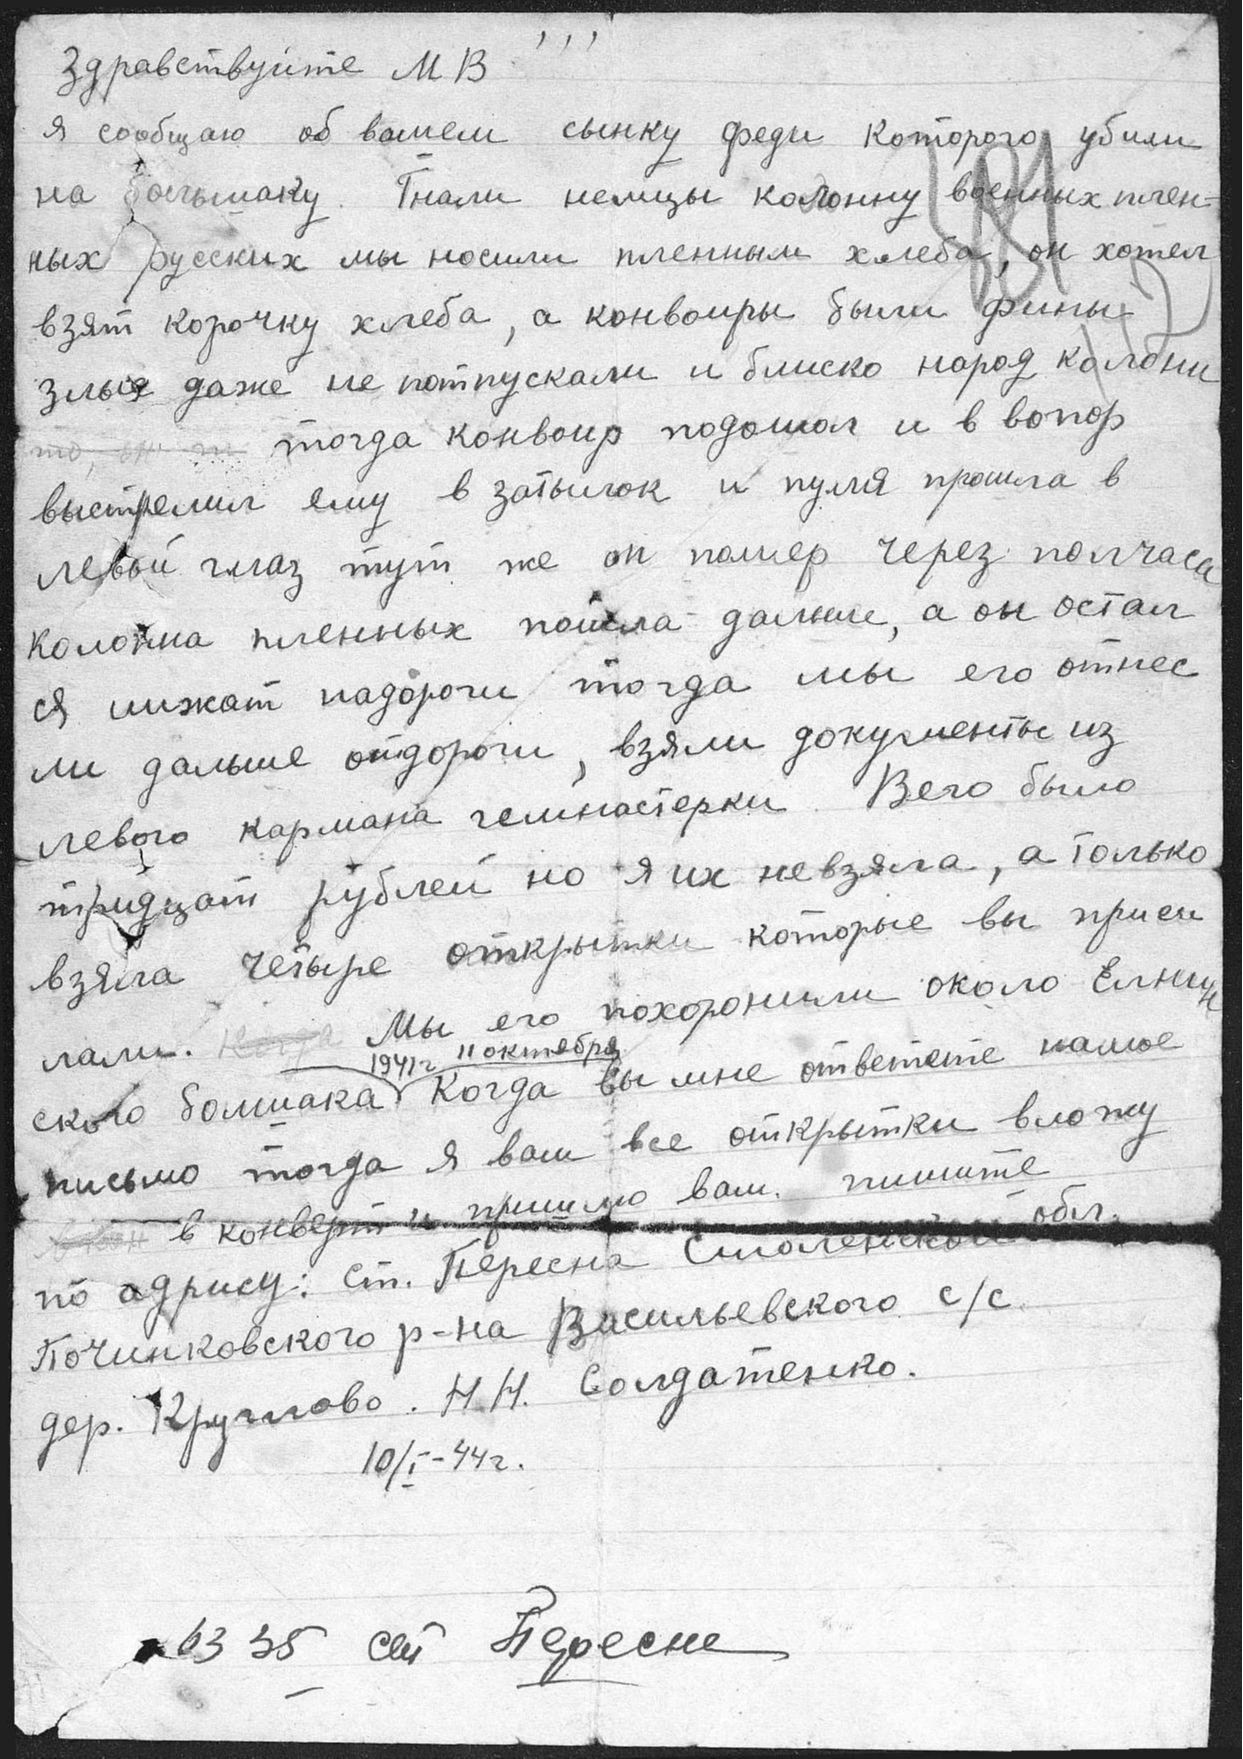 Здравствуйте М В ,,,
я сообщаю об вашем сынку феди которого убили
на большаку. Гнали немцы колонну военных плен-
ных русских мы носили пленным хлеба, он хотел
взят корочку хлеба, а конвоиры были фины
злыя даже не потпускали и блиско народ колони
тогда конвоир подошол и в вопор
выстрелил ему в затылок и пуля прошла в
левый глаз тут же он помер через полчаса
колонна пленных пошла дальше, а он остал
ся лижат надороги тогда мы его отнес
ли дальше отдороги, взяли документы из
левого кармана гемнастерки. Вего было
тридцат рублей но я их невзяла, а только
взяла четыре открытки которые вы присы
лали. Мы его похоронили около Ельнин
1941г 11 октября
ского болшака Когда вы мне ответете намое
письмо тогда я вам все открытки вложу
в конверт и пришлю вам. пишите
по адрису: ст. Пересна Смоленской обл.
Починковского р-на Васильевского с/с
дер. Круглово. Н.Н. Солдатенко.
10/I-44г.
Пересне
181